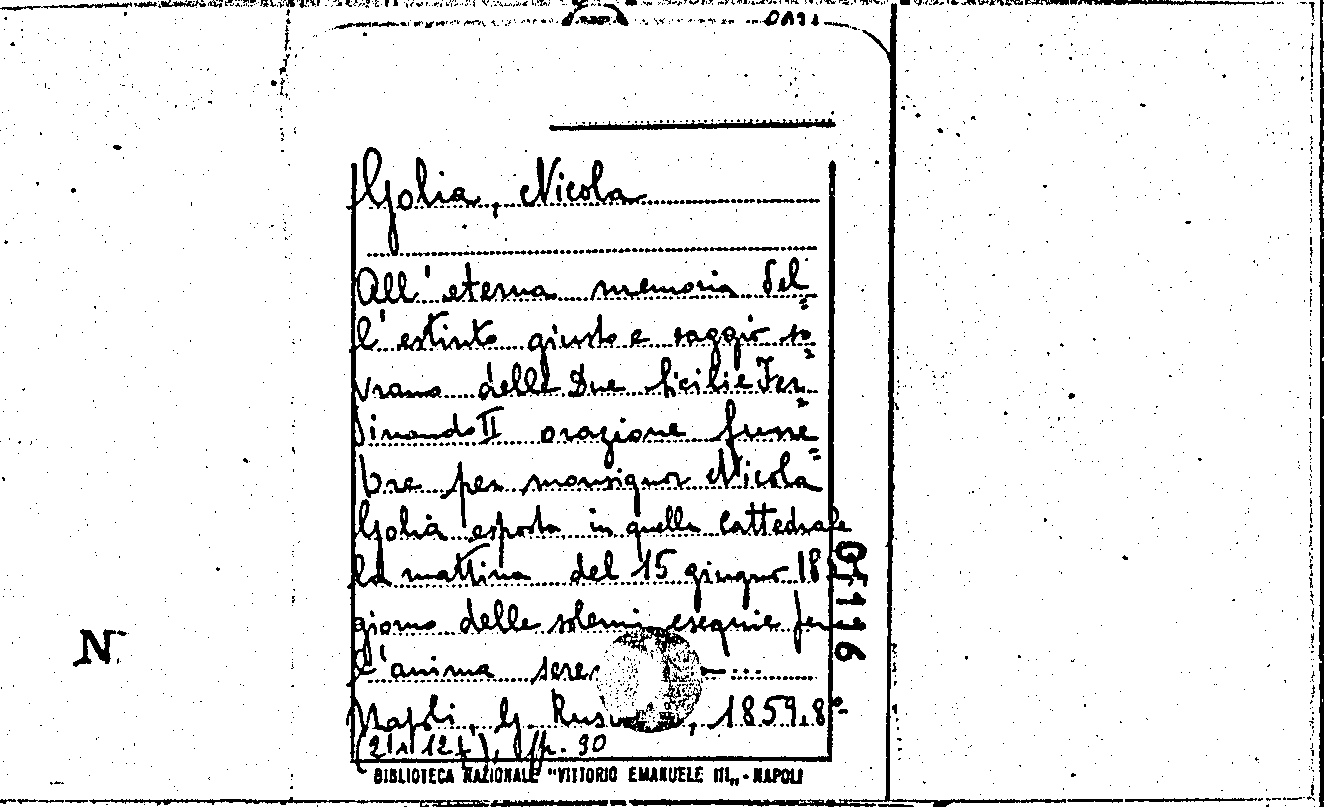 Golia, Nicola
All'eterna memoria del=
l'estinto giusto e saggio so=
vrano delle Due Sicilie Fer=
dinando II orazione fune=
bre per monsignor Nicola
Golia esposta in quella cattedrale
la mattina del 15 giugno 18
giorno delle solenni esequie per
l'anima
Napoli, G. 1859. 8°-
pp. 30
BIBLIOTECA NAZIONALE "VITTORIO EMANUELE III„ - NAPOLI
01116
N